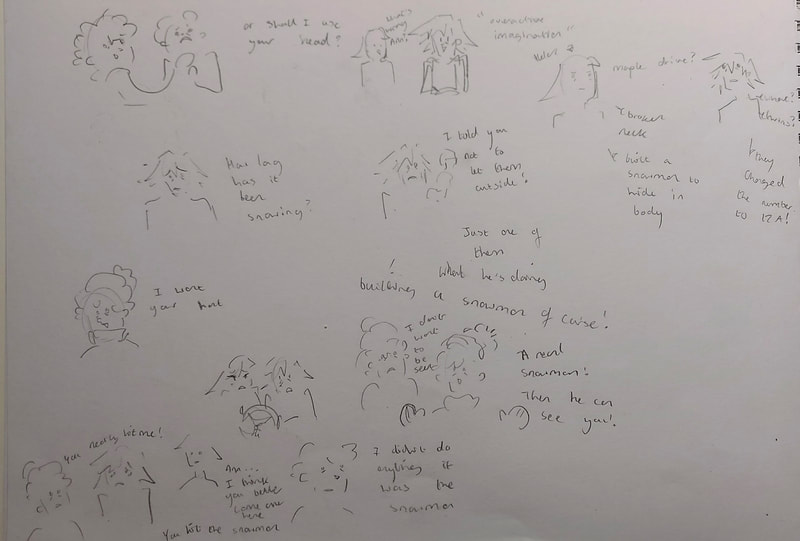 or shall I use
your head?
what's
wrong
"overactive
imagination"
maple drive?
broken
neck
built a
snowman to
hide in
body
they
changed
the number
to 12A!
How long
has it
been
snowing?
I told you
not to
let them
outside!
Just one of
them
!
what he's doing
building a snowman of course!
I want
your hat
I don't
want
to
be
seen
A real
snowman!
Then he can
see you!
You nearly hit me!
I think
you better
come over
here
You hit the snowman
I didn't do
anything it
was the
snowman